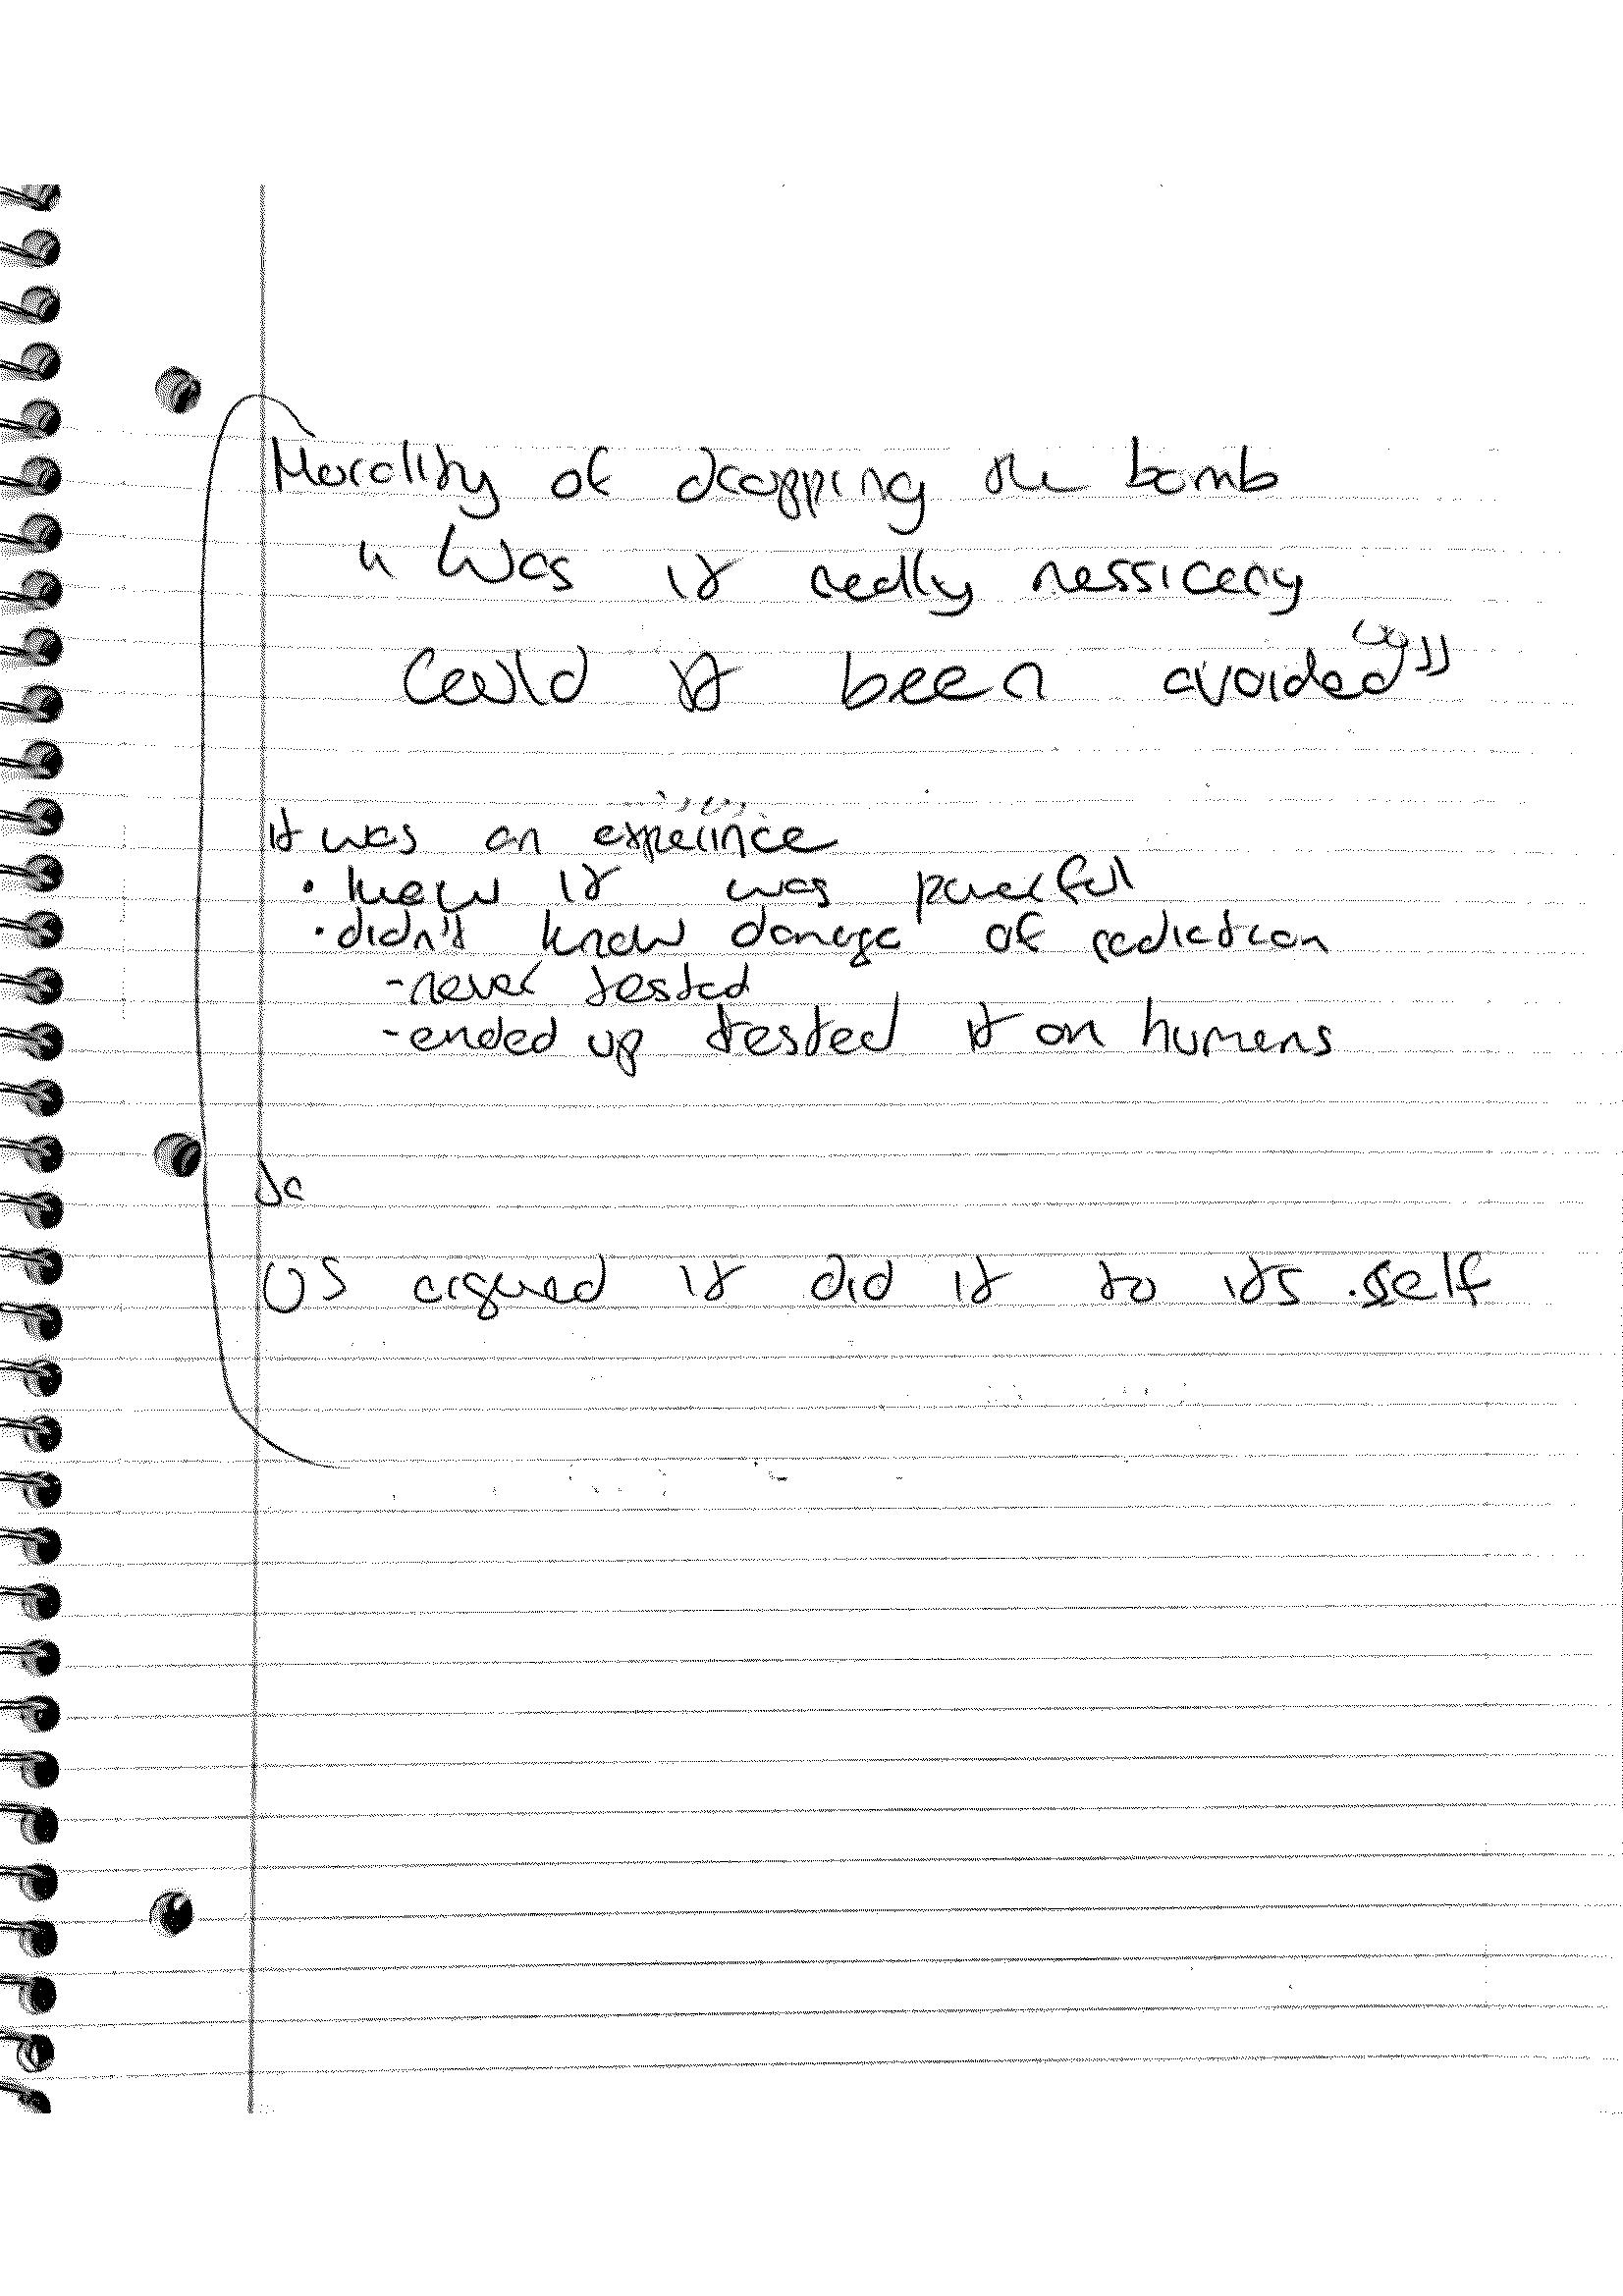 Morality of dropping the bomb
"Was it really nessicary
Could it been avoided"
it was an experince
• knew it was powerful
• didn't know damage of radiation
- never tested
- ended up tested it on humans
Ja
US argued it did it to its self